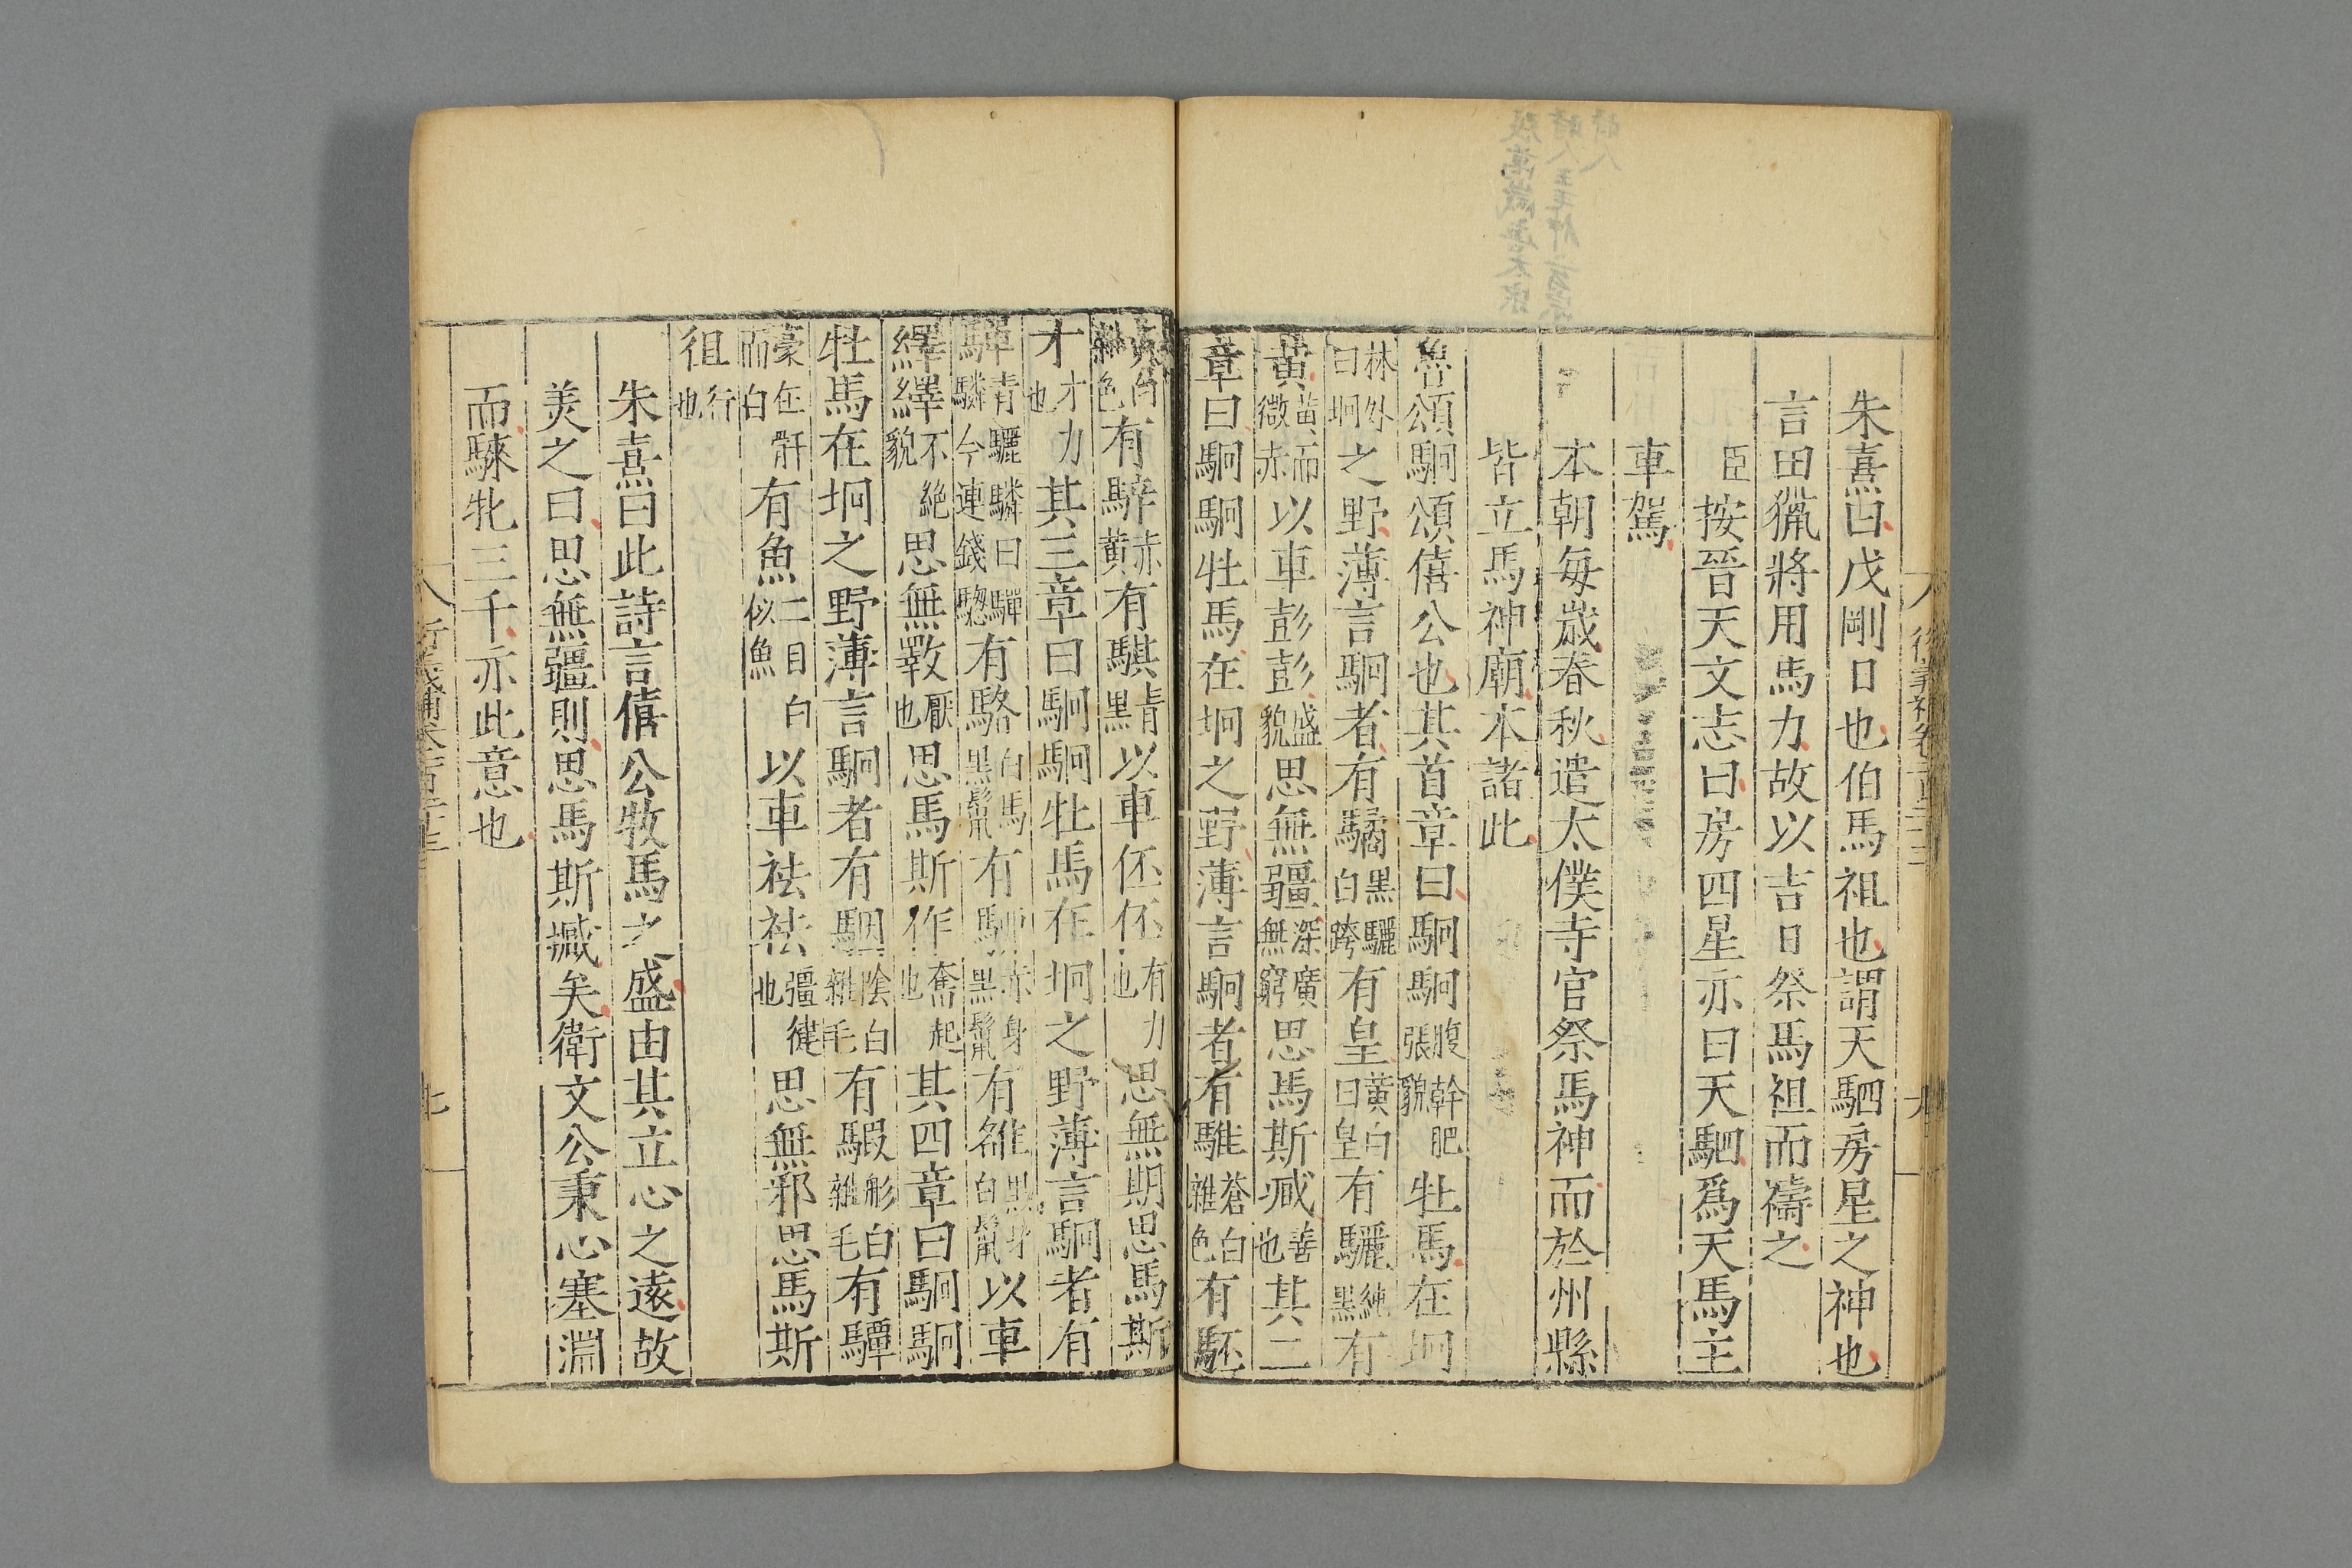 朱熹曰戊剛日也伯馬祖也謂天駟房星之神也
言田獵將用馬力故以吉日祭馬祖而禱之
臣按晉天文志曰房四星亦曰天駟爲天馬主
車駕
本朝每歲春秋遣太僕寺官祭馬神而於州縣
皆立馬神廟本諸此
魯頌駉頌僖公也其首章曰駉駉腹幹肥張貌牡馬在坰
林外曰坰之野薄言駉者有驈黑驪白跨有皇黃白曰皇有驪純黑有
黃黃而微赤以車彭彭盛貌思無疆深廣無窮思馬斯臧善也其二
章曰駉駉牡馬在坰之野薄言駉者有騅蒼白雜色有駓
有騂赤黃有騏青黑以車伾伾有力也思無期思馬斯
才才力也其三章曰駉駉牡馬在坰之野薄言駉者有
驒青驪驎曰驒驎今連錢驄有駱白馬黑鬣有駵赤身黑鬣有雒黑身白鬣以車
繹繹不絶貌思無斁厭也思馬斯作奮起也其四章曰駉駉
牡馬在坰之野薄言駉者有駰陰白雜毛有騢彤白雜毛有驔
豪在骭而白有魚二目白似魚以車祛祛彊健也思無邪思馬斯
徂行也
朱熹曰此詩言僖公牧馬之盛由其立心之遠故
美之曰思無疆則思馬斯臧矣衛文公秉心塞淵
而騋牝三千亦此意也